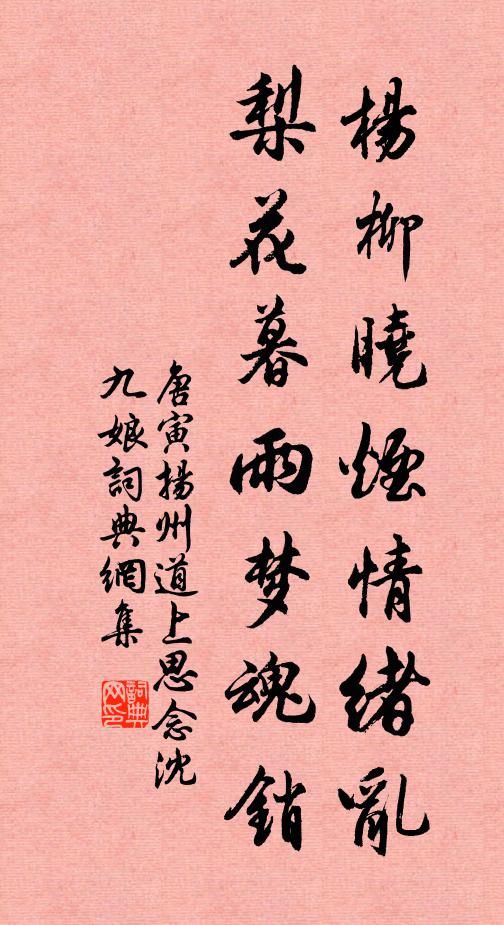 楊柳曉煙情緒亂
梨花暮雨梦魂銷
唐寅揚州道上思念沈
九娘詞典網集
詞典
网印